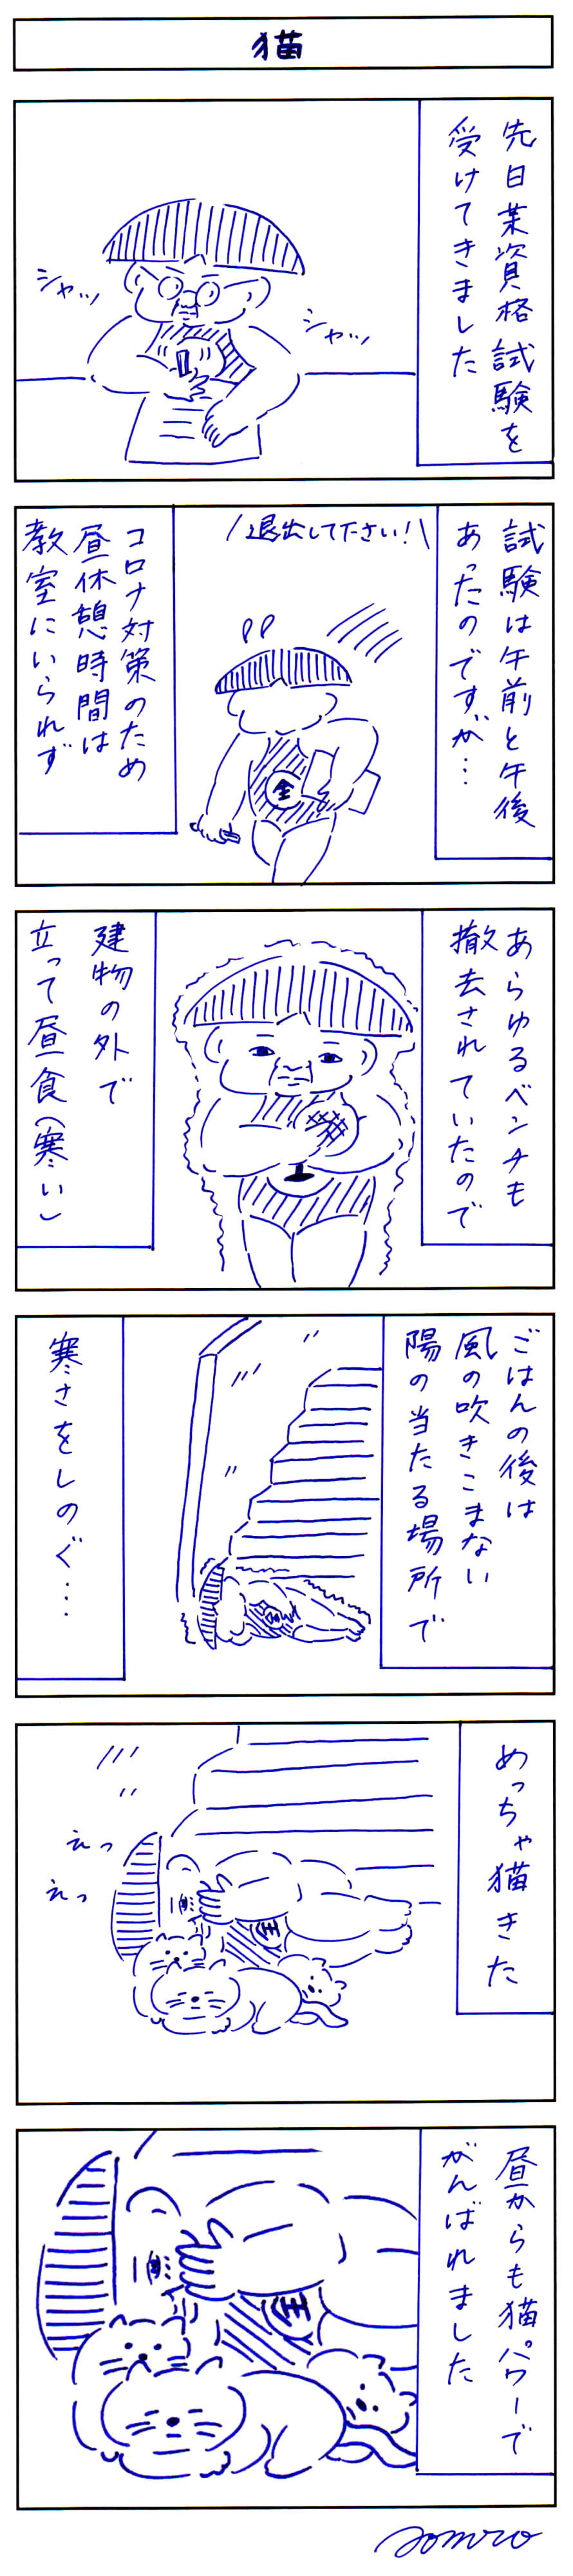 猫
先日某資格試験を
受けてきました
シャッ
シャッ
試験は午前と午後
あったのですが…
退出して下さい!
全
コロナ対策のため
昼休憩時間は
教室にいられず
あらゆるベンチも
撤去されていたので
建物の外で
立って昼食(寒い)
ごはんの後は
風の吹きこまない
陽の当たる場所で
寒さをしのぐ…
めっちゃ猫きた
えっ
えっ
昼からも猫パワーで
がんばれました